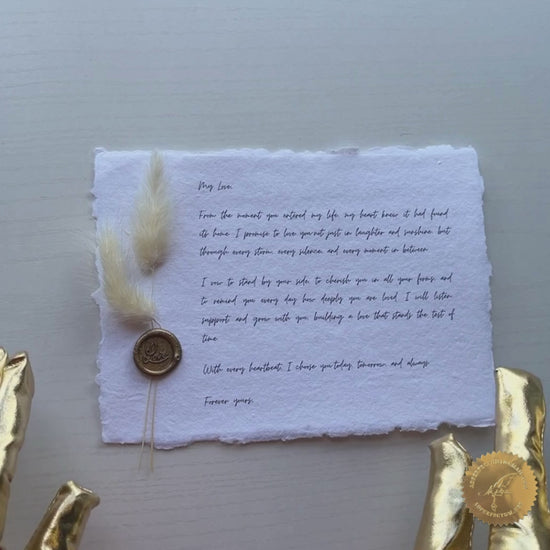 My Love,
From the moment you entered my life, my heart knew it had found
its home. I promise to love you not just in laughter and sunshine, but
through every storm, every silence, and every moment in between.
I vow to stand by your side, to cherish you in all your forms, and
to remind you every day how deeply you are loved. I will listen,
support, and grow with you, building a love that stands the test of
time.
With every heartbeat, I choose you today, tomorrow, and always.
Forever yours,